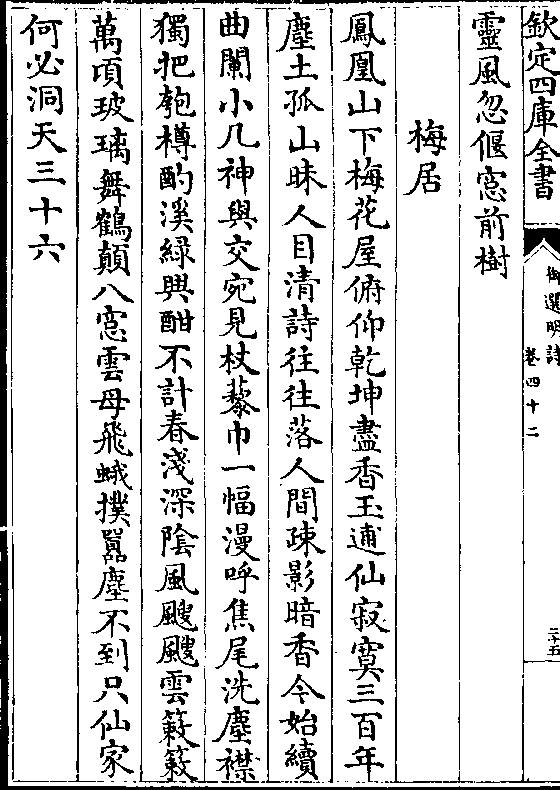 欽定四庫全書
御選明詩
卷四十二
三十五
靈風忽偃窓前樹
梅居
鳳凰山下梅花屋俯仰乾坤盡香玉逋仙寂寞三百年
塵土孤山昧人目清詩往往落人間疎影暗香今始續
曲闌小几神與交宛見杖藜巾一幅漫呼焦尾洗塵襟
獨把匏樽酌溪緑興酣不計春淺深陰風颼颼雲簌簌
萬頃玻璃舞鶴顛八窓雲母飛蛾撲囂塵不到只仙家
何必洞天三十六